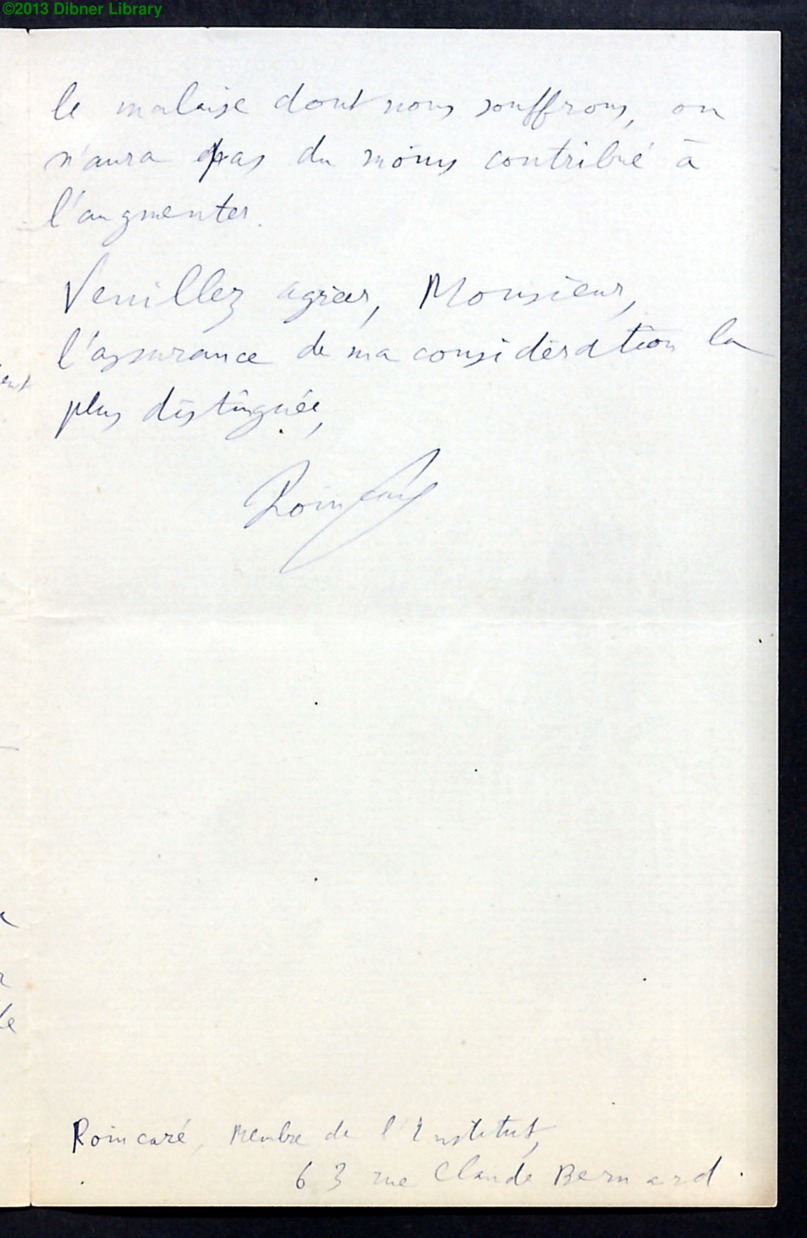 ©2013 Dibner Library
le malaise dont nous souffrons, on
n'aura pas du moins contribué à
l'augmenter.
Veuillez agréer, Monsieur,
l'assurance de ma considération la
plus distinguée,
Poincaré
Poincaré, Membre de l'Institut,
63 rue Claude Bernard.